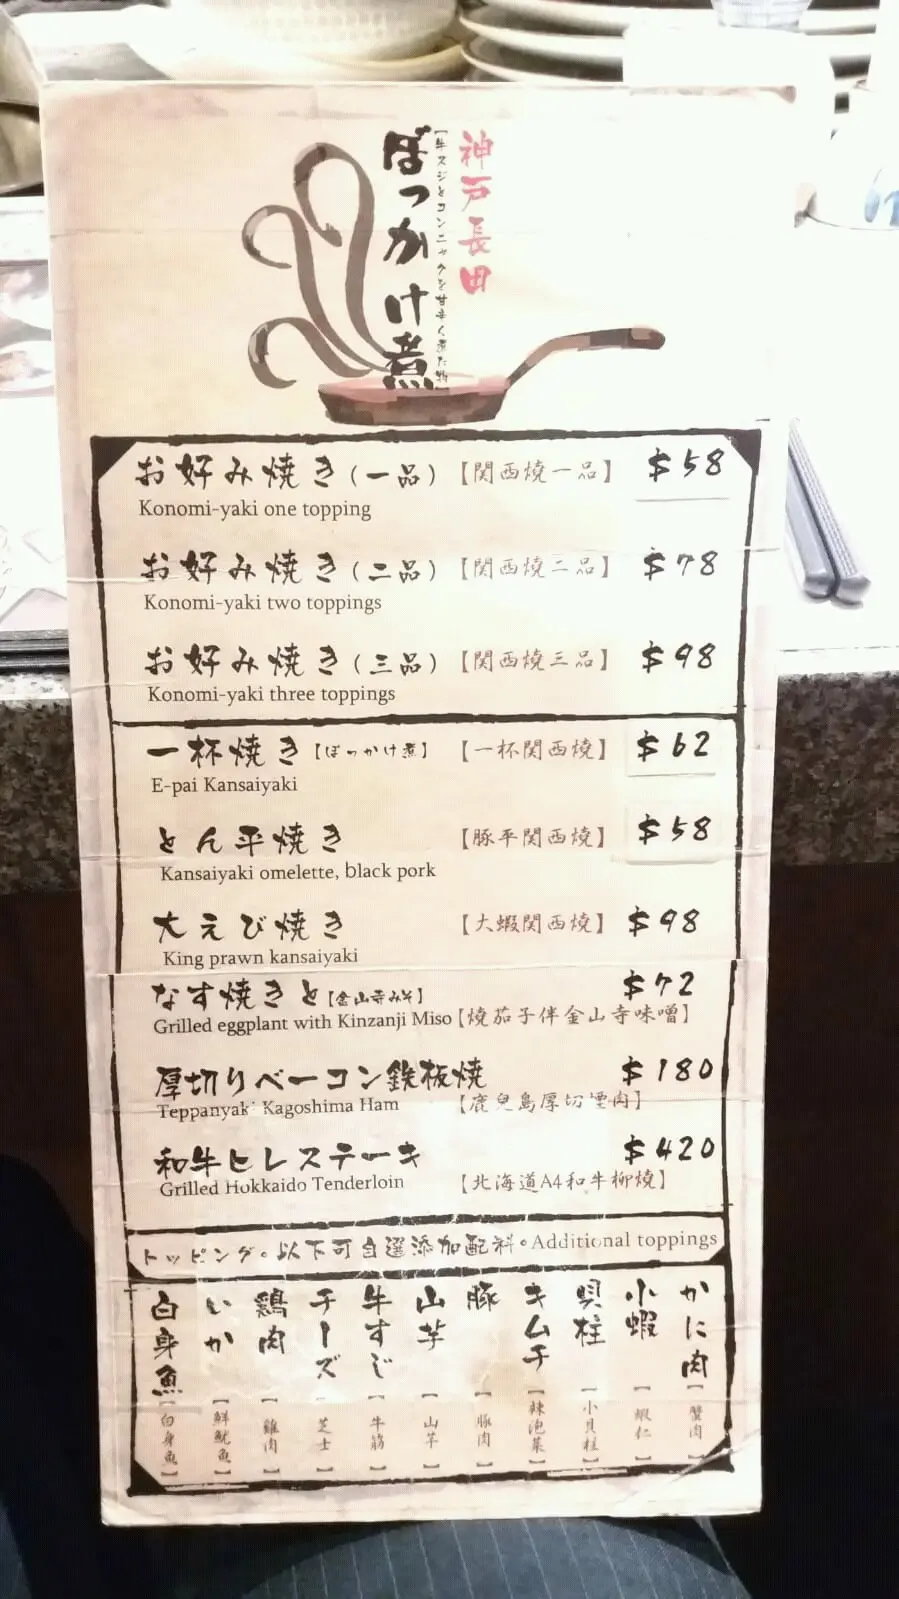 神戸長田
【牛スジとコンニャクを甘辛く煮た物】
ぼっかけ煮
お好み焼き(一品) 【関西燒一品】 $58
Konomi-yaki one topping
お好み焼き(二品) 【関西燒二品】 $78
Konomi-yaki two toppings
お好み焼き(三品) 【関西燒三品】 $98
Konomi-yaki three toppings
一杯焼き【ぼっかけ煮】 【一杯関西燒】 $62
E-pai Kansaiyaki
とん平焼き 【豚平関西燒】 $58
Kansaiyaki omelette, black pork
大えび焼き 【大蝦関西燒】 $98
King prawn kansaiyaki
なす焼きと【金山寺みそ】 $72
Grilled eggplant with Kinzanji Miso【燒茄子伴金山寺味噌】
厚切りベーコン鉄板焼 $180
Teppanyaki Kagoshima Ham 【鹿兒島厚切煙肉】
和牛ヒレステーキ $420
Grilled Hokkaido Tenderloin 【北海道A4和牛柳燒】
トッピング。以下可自選添加配料。Additional toppings
かに肉【蟹肉】
小蝦【蝦仁】
貝柱【小貝柱】
キムチ【辣泡菜】
豚【豚肉】
山芋【山芋】
牛すじ【牛筋】
チーズ【芝士】
鶏肉【雞肉】
いか【鮮魷魚】
白身魚【白身魚】